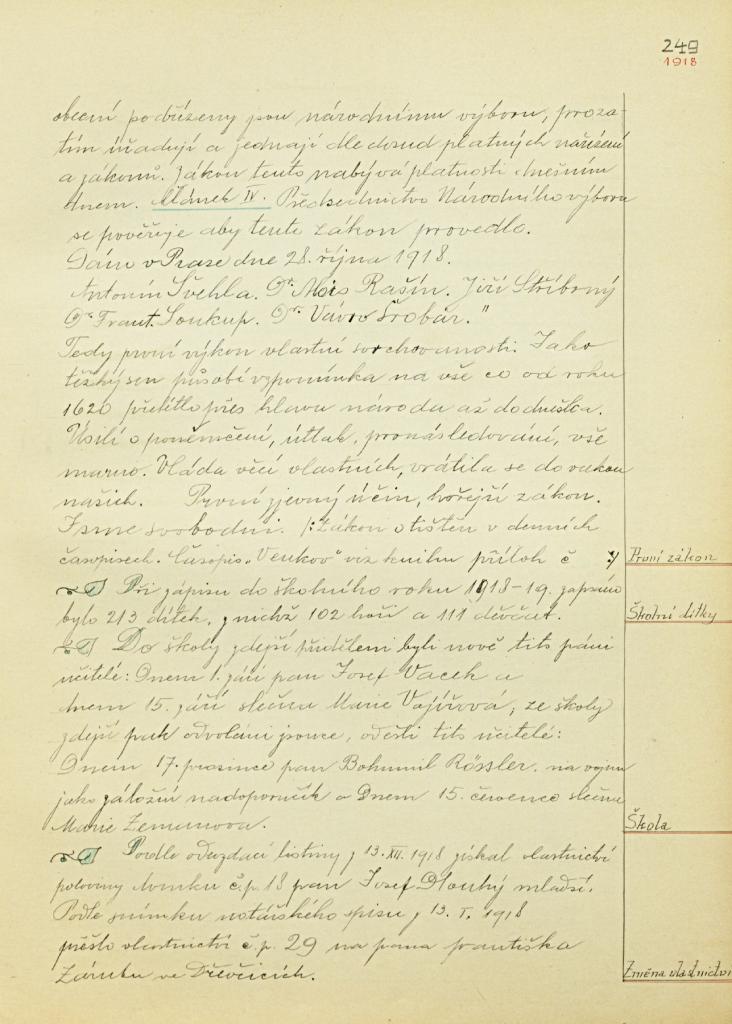 249
1918
obecní podřízeny jsou národnímu výboru, proza-
tím úřadují a jednají dle dosud platných nařízení
a zákonů. Zákon tento nabývá platnosti dnešním
dnem. Článek IV. Předsednictvo Národního výboru
se pověřuje aby tento zákon provedlo.
Dáno v Praze dne 28. října 1918.
Antonín Švehla. Dr. Alois Rašín. Jiří Stříbrný
Dr. Frant. Soukup. Dr. Vávro Šrobár."
Tedy první výkon vlastní svrchovanosti. Jako
těžký sen působí vzpomínka na vše co od roku
1620 přelétlo přes hlavu národa až do dneška.
Úsilí o poněmčení, útlak, pronásledování, vše
marno. Vláda věcí vlastních, vrátila se do rukou
našich. První zjevný účin, hořejší zákon.
Jsme svobodni. /: Zákon otištěn v denních
časopisech. Časopis „Venkov" viz knihu příloh č :/
První zákon
Při zápisu do školního roku 1918-19. zapsáno
bylo 213 dítek, z nichž 102 hoši a 111 děvčat.
Školní dítky
Do školy zdejší přiděleni byli nově tito páni
učitelé: Dnem 1. září pan Josef Vacek a
dnem 15. září slečna Marie Vojířová, ze školy
zdejší pak odvoláni jsouce, odešli tito učitelé:
Dnem 17. prosince pan Bohumil Rössler. na vojnu
jako záložní nadporučík a Dnem 15. července slečna
Marie Zemanova.
Škola
Podle odevzdací listiny z 13. XII. 1918 získal vlastnictví
poloviny domku č.p. 18 pan Josef Dlouhý mladší.
Podle snímku notářského spisu z 13. I. 1918
přešlo vlastnictví č.p. 29 na pana Františka
Zárubu ve Dřevčicích.
Změna vlastnictví